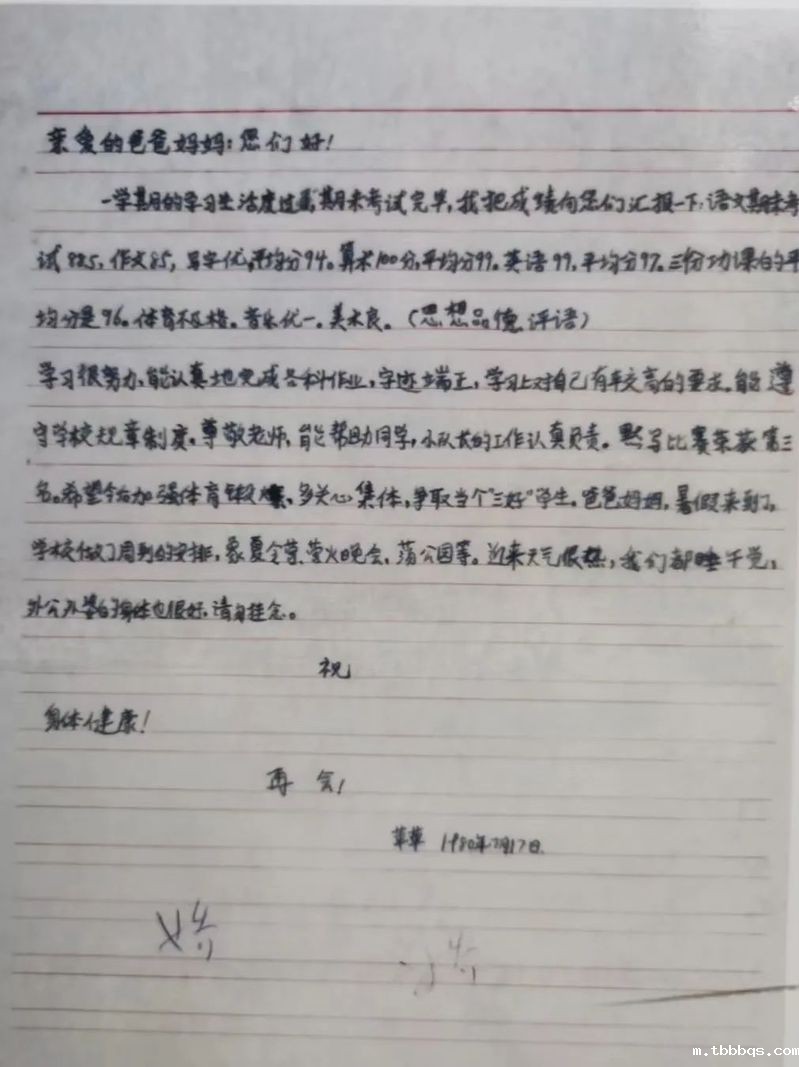 亲爱的爸爸妈妈:您们好!
一学期的学习生活度过,期末考试完毕,我把成绩向您们汇报一下:语文期末考
试825,作文85,写字优,平均分94。算术100分,平均分99。英语99,平均分97。三份功课的平
均分是96。体育不及格。音乐优一。美术良。(思想品德评语)
学习很努力,能认真地完成各科作业,字迹端正,学习上对自己有较高的要求。能遵
守学校规章制度。尊敬老师,能帮助同学,小队长的工作认真负责。默写比赛荣获第三
名。希望今后加强体育锻炼、多关心集体,争取当个"三好"学生。爸爸妈妈,暑假来到了,
学校做了周到的安排,象夏令营、萤火晚会、蒲公园等。近来天气很热,我们都睡午觉,
外公外婆的身体也很好,请勿挂念。
祝
身体健康!
再会!
1980年7月17日.
m.tbbbqs.com